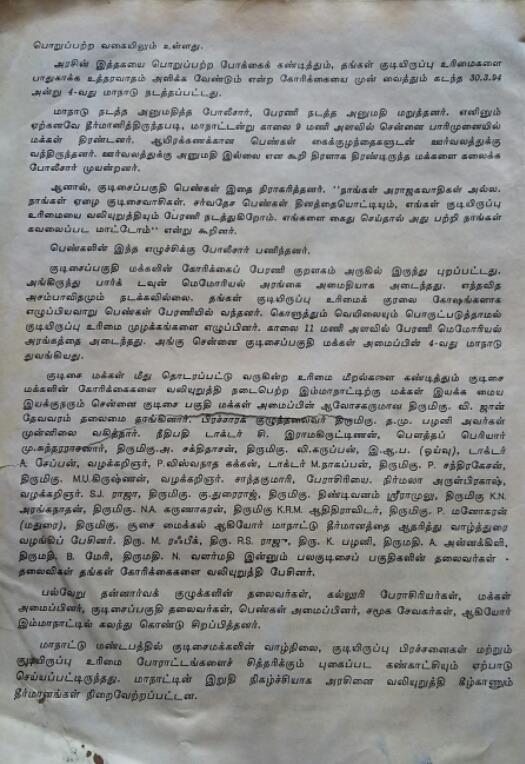 பொறுப்பற்ற வகையிலும் உள்ளது.
அரசின் இத்தகயை பொறுப்பற்ற போக்கைக் கண்டித்தும், தங்கள் குடியிருப்பு உரிமைகளை
பாதுகாக்க உத்தரவாதம் அளிக்க வேண்டும் என்ற கோரிக்கையை முன் வைத்தும் கடந்த 30.3.94
அன்று 4-வது மாநாடு நடத்தப்பட்டது.
மாநாடு நடத்த அனுமதித்த போலீசார், பேரணி நடத்த அனுமதி மறுத்தனர். எனினும்
ஏற்கனவே தீர்மானித்திருந்தபடி, மாநாட்டன்று காலை 9 மணி அளவில் சென்னை பாரிமுனையில்
மக்கள் திரண்டனர். ஆயிரக்கணக்கான பெண்கள் கைக்குழந்தைகளுடன் ஊர்வலத்துக்கு
வந்திருந்தனர். ஊர்வலத்துக்கு அனுமதி இல்லை என கூறி திரளாக திரண்டிருந்த மக்களை கலைக்க
போலீசார் முயன்றனர்.
ஆனால், குடிசைப்பகுதி பெண்கள் இதை நிராகரித்தனர். "நாங்கள் அராஜகவாதிகள் அல்ல.
நாங்கள் ஏழை குடிசைவாசிகள், சர்வதேச பெண்கள் தினத்தையொட்டியும், எங்கள் குடியிருப்பு
உரிமையை வலியுறுத்தியும் பேரணி நடத்துகிறோம். எங்களை கைது செய்தால் அது பற்றி நாங்கள்
கவலைப்பட மாட்டோம்" என்று கூறினர்.
பெண்களின் இந்த எழுச்சிக்கு போலீசார் பணிந்தனர்.
குடிசைப்பகுதி மக்களின் கோரிக்கைப் பேரணி குறளகம் அருகில் இருந்து புறப்பட்டது.
அங்கிருந்து பார்க் டவுன் மெமோரியல் அரங்கை அமைதியாக அடைந்தது. எந்தவித
அசம்பாவிதமும் நடக்கவில்லை. தங்கள் குடியிருப்பு உரிமைக் குரலை கோஷங்களாக
எழுப்பியவாறு பெண்கள் பேரணியில் வந்தனர். கொளுத்தும் வெயிலையும் பொருட்படுத்தாமல்
குடியிருப்பு உரிமை முழக்கங்களை எழுப்பினர். காலை 11 மணி அளவில் பேரணி மெமோரியல்
அரங்கத்தை அடைந்தது. அங்கு சென்னை குடிசைபகுதி மக்கள் அமைப்பின் 4-வது மாநாடு
துவங்கியது.
குடிசை மக்கள் மீது தொடரப்பட்டு வருகின்ற உரிமை மீறல்களை கண்டித்தும் குடிசை
மக்களின் கோரிக்கைகளை வலியுறுத்தி நடைபெற்ற இம்மாநாட்டிற்கு மக்கள் இயக்க மைய
இயக்குநரும் சென்னை குடிசை பகுதி மக்கள் அமைப்பின் ஆலோசகருமான திருமிகு. வி. ஜான்
தேவவரம் தலைமை தாங்கினார். பிரச்சாரக் குழுத்தலைவர் திருமிகு த.மு. பழனி அவர்கள்
முன்னிலை வகித்தார். நீதிபதி டாக்டர் சி. இராமகிருட்டிணன், பௌத்தப் பெரியார்
மு.சுந்தரராசனார், திருமிகு.அ. சக்திதாசன், திருமிகு. வி.கருப்பன், இ.ஆ.ப. (ஓய்வு), டாக்டர்
A. சேப்பன், வழக்கறிஞர். P.வில்வநாத கக்கன், டாக்டர் M.நாகப்பன், திருமிகு. P. சந்திரகேசன்,
திருமிகு. M.U.கிருஷ்ணன், வழக்கறிஞர். சாந்தகுமாரி, பேராசிரியை. நிர்மலா அருள்பிரகாஷ்,
வழக்கறிஞர். S.J. ராஜா, திருமிகு. கு.துரைராஜ், திருமிகு. திண்டிவனம் ஸ்ரீராமுலு, திருமிகு K.N.
அரங்கநாதன், திருமிகு. N.A. கருணாகரன், திருமிகு K.R.M. ஆதிதிராவிடர், திருமிகு. P. மனோகரன்
(மதுரை), திருமிகு. சூசை மைக்கல் ஆகியோர் மாநாட்டு தீர்மானத்தை ஆதரித்து வாழ்த்துரை
வழங்கிப் பேசினர். திரு. M. ரஃபீக், திரு. R.S. ராஜு, திரு. K. பழனி, திருமதி. A. அன்னக்கிளி,
திருமதி, B. மேரி, திருமதி. N. வளர்மதி இன்னும் பலகுடிசைப் பகுதிகளின் தலைவர்கள் -
தலைவிகள் தங்கள் கோரிக்கைகளை வலியுறுத்தி பேசினர்.
பல்வேறு தன்னார்வக் குழுக்களின் தலைவர்கள், கல்லூரி பேராசிரியர்கள், மக்கள்
அமைப்பினர், குடிசைப்பகுதி தலைவர்கள், பெண்கள் அமைப்பினர், சமூக சேவகர்கள், ஆகியோர்
இம்மாநாட்டில் கலந்து கொண்டு சிறப்பித்தனர்.
மாநாட்டு மண்டபத்தில் குடிசைமக்களின் வாழ்நிலை, குடியிருப்பு பிரச்சனைகள் மற்றும்
குடியிருப்பு உரிமை போராட்டங்களைச் சித்தரிக்கும் புகைப்பட கண்காட்சியும் ஏற்பாடு
செய்யப்பட்டிருந்தது. மாநாட்டின் இறுதி நிகழ்ச்சியாக அரசினை வலியுறுத்தி கீழ்காணும்
தீர்மானங்கள் நிறைவேற்றப்பட்டன.